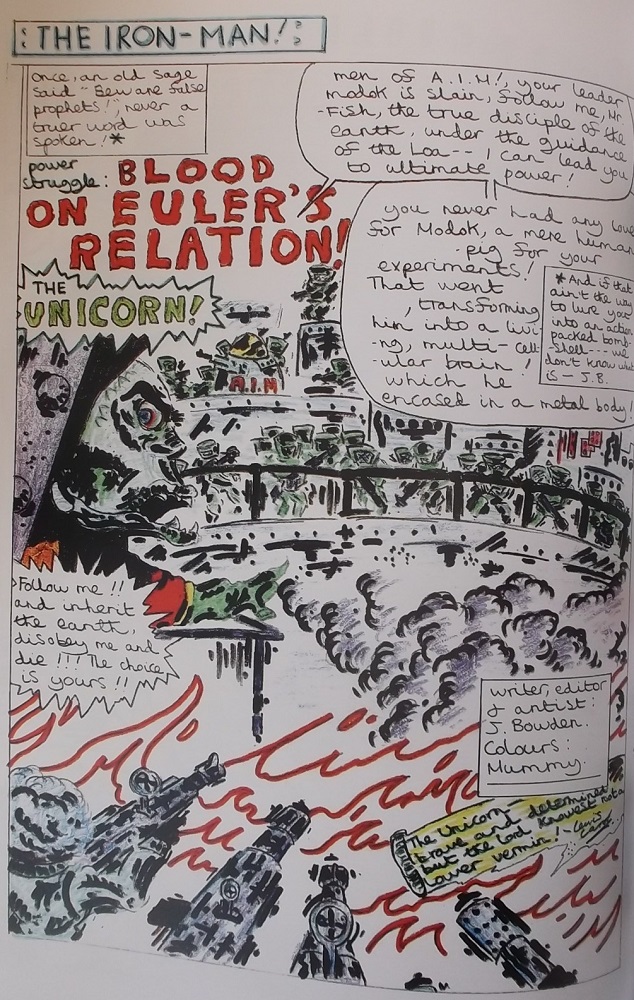 : THE IRON-MAN! :
Once, an old sage
said "Beware false
prophets!", never a
truer word was
spoken! *
men of A.I.M!, your leader
Modok is slain, follow me, Mr
-Fish, the true disciple of the
earth, under the guidance
of the Loa--, I can lead you
to ultimate power!
power
struggle: BLOOD
ON EULER'S
RELATION!
you never had any love
for Modok, a mere human
-pig for your
experiments!
That went
, transforming
him into a livi
-ng, multi-cell
-ular brain!
which he
encased in a metal body!
* And if that
ain't the way
to lure you
into an action
packed bomb-
shell --- we
don't know what
is - J.B.
THE
UNICORN!
A.I.M
Follow me!!
and inherit
the earth,
disobey me and
die!!! The choice
is yours!!
writer, editor
& artist:
J. Bowden.
Colours:
Mummy.
The Unicorn -
brave and determined
but the Lord knowest not a
lower vermin! - Lewis